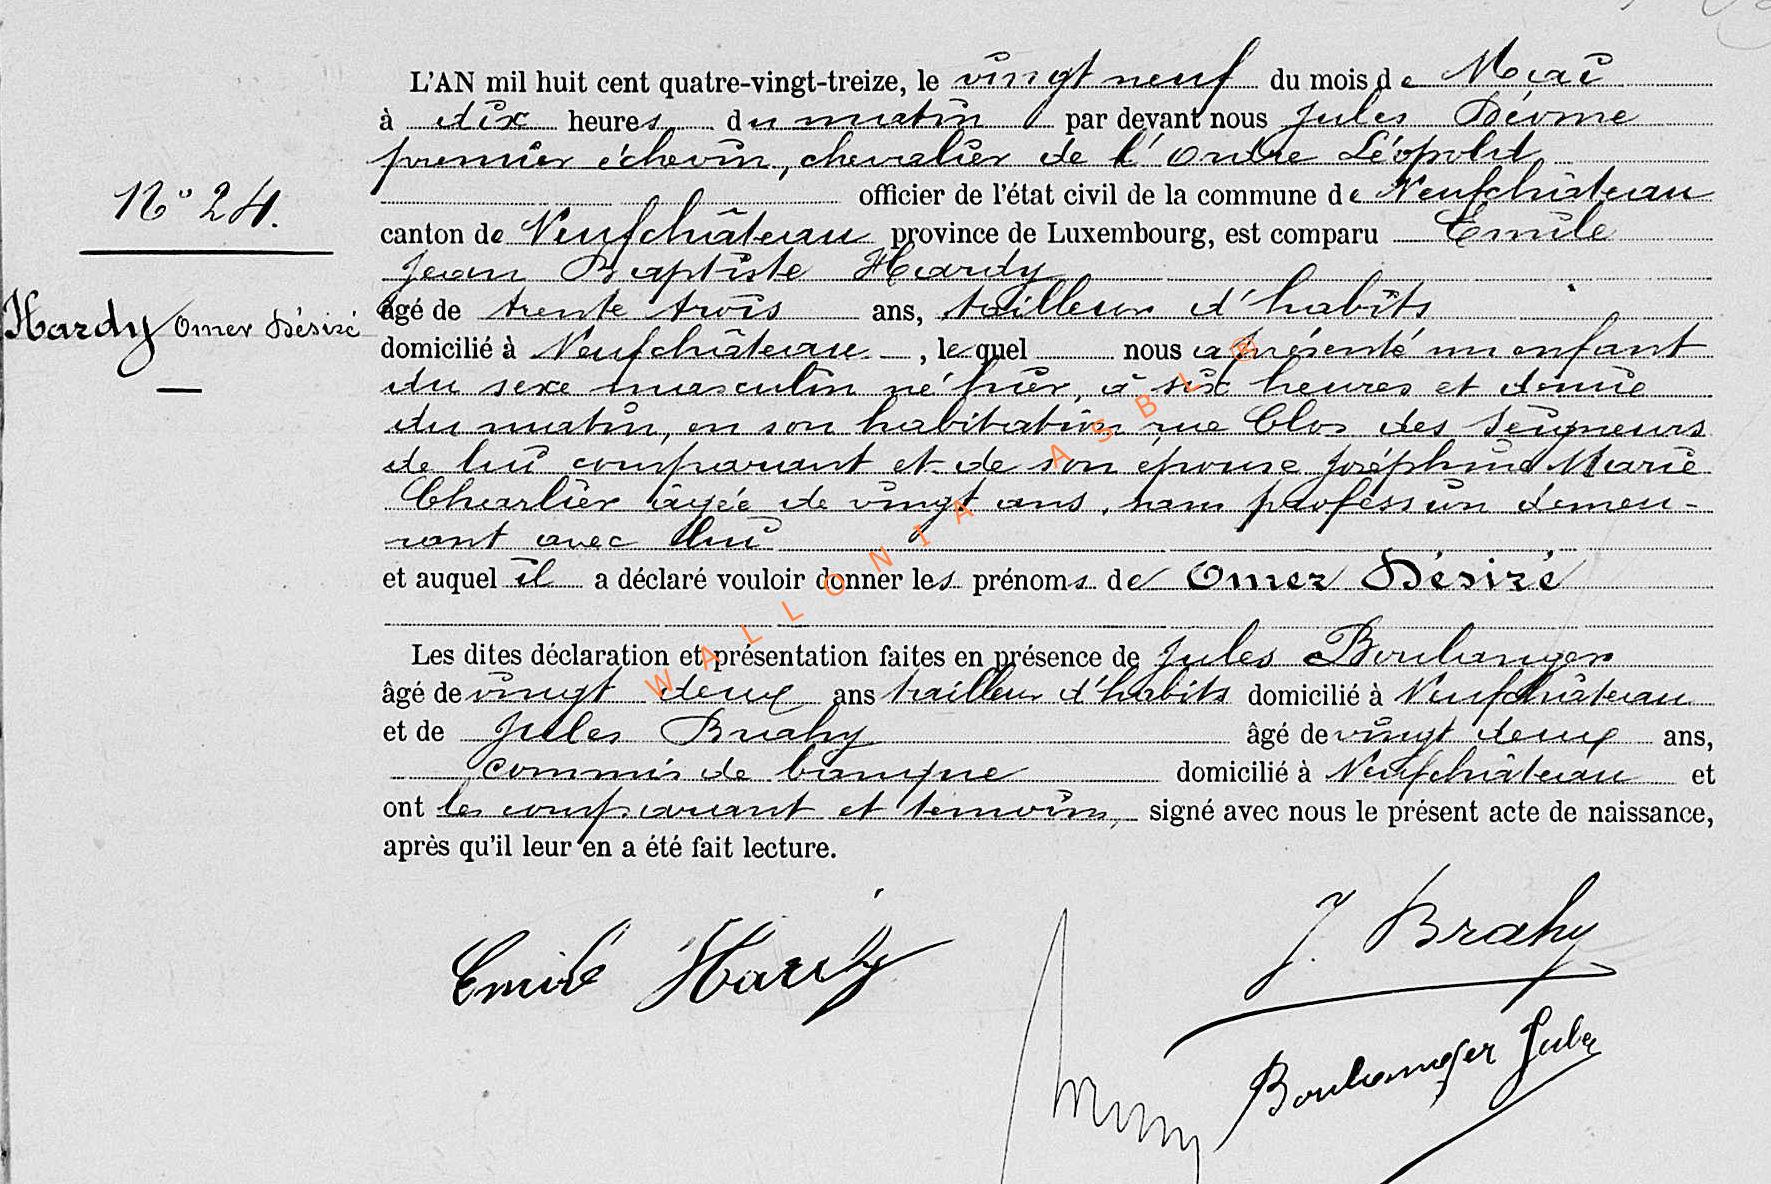 L'AN mil huit cent quatre-vingt-treize, le vingt neuf du mois de Mai
à dix heures du matin par devant nous Jules
premier échevin, chevalier de l'Ordre Léopold
N° 24.
officier de l'état civil de la commune de Neufchâteau
canton de Neufchâteau province de Luxembourg, est comparu Emile
Jean Baptiste Hardy
âgé de trente trois ans, tailleur d'habits
Hardy Omer Désiré
domicilié à Neufchâteau, lequel nous a présenté un enfant
du sexe masculin né hier, à six heures et demie
du matin, en son habitation rue Clos des Seigneurs
de lui comparant et de son épouse Joséphine Marie
Charlier âgée de vingt ans, sans profession demeu-
rant avec lui
et auquel il a déclaré vouloir donner les prénoms de Omer Désiré
Les dites déclaration et présentation faites en présence de Jules Boulanger
âgé de vingt deux ans tailleur d'habits domicilié à Neufchâteau
et de Jules Brahy âgé de vingt deux ans,
commis de banque domicilié à Neufchâteau et
ont les comparant et témoins, signé avec nous le présent acte de naissance,
après qu'il leur en a été fait lecture.
WALLONIA ASBL ®
J. Brahy
Emile Hardy
Boulanger Jules